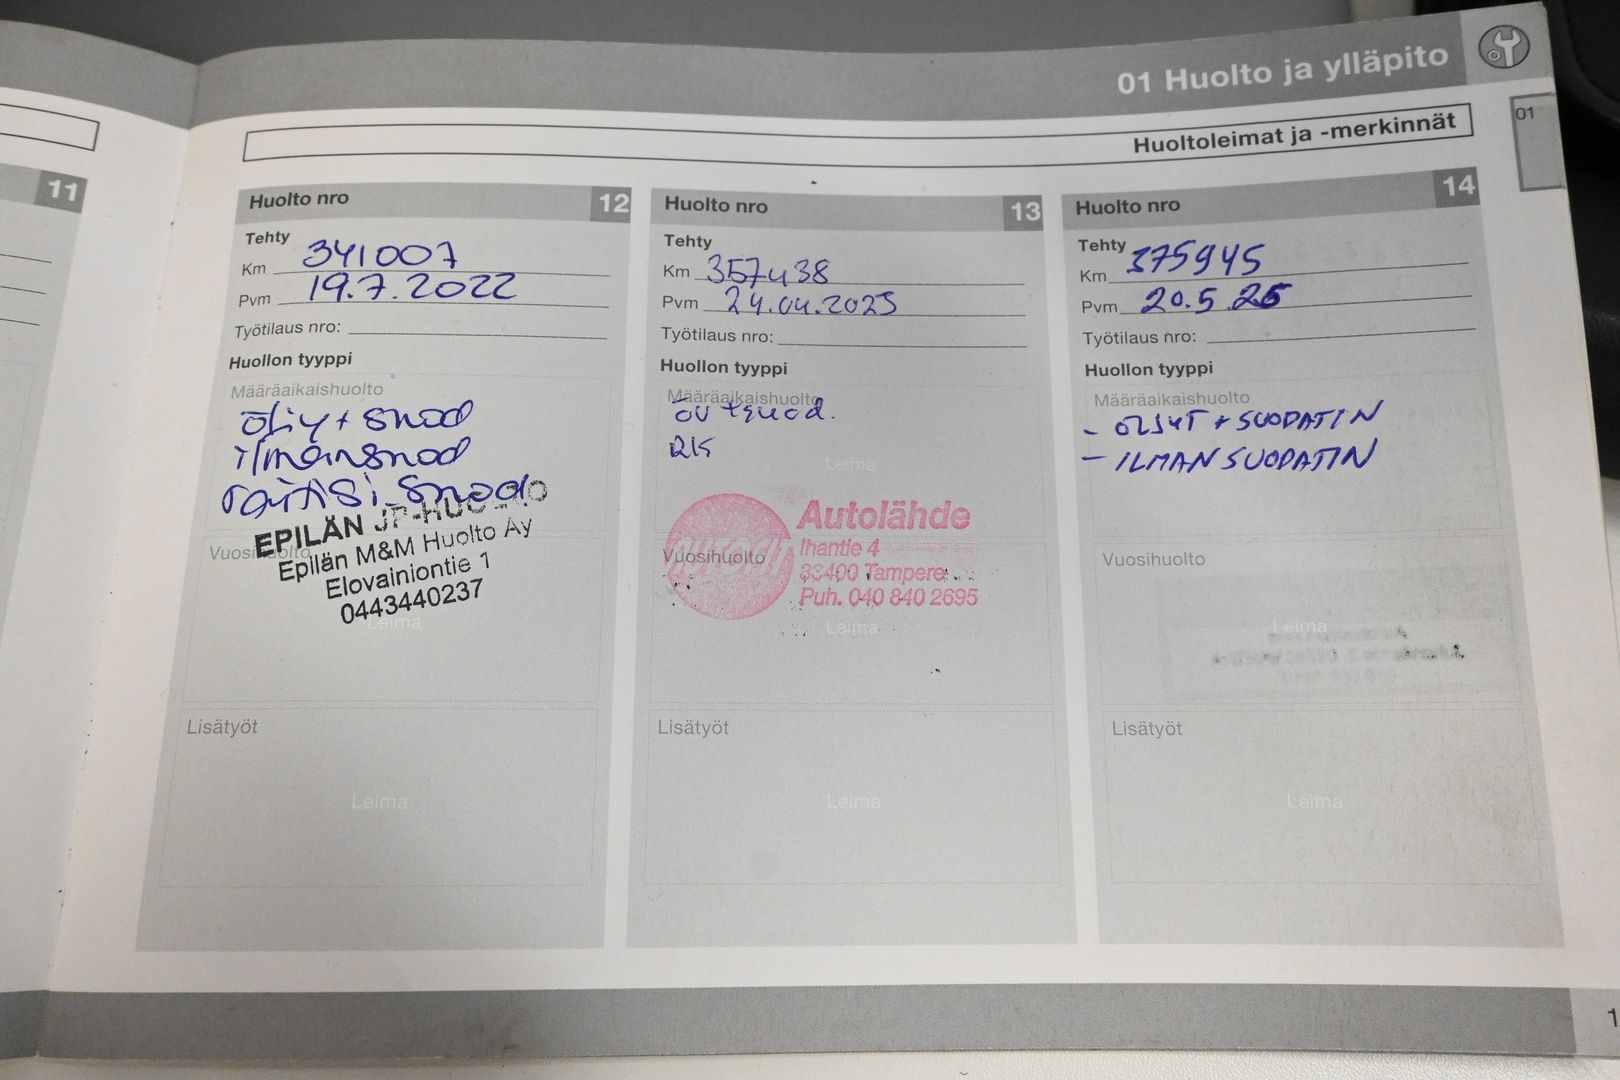 01 Huolto ja ylläpito
01
Huoltoleimat ja -merkinnät
11
Huolto nro 12
Tehty
Km 341007
Pvm 19.7.2022
Työtilaus nro:
Huollon tyyppi
Määräaikaishuolto
öljy + suod
ilmansuod
raitisi.suod
EPILÄN JP-HUOLTO
Epilän M&M Huolto Ay
Vuosihuolto
Elovainiontie 1
0443440237
Leima
Lisätyöt
Leima
Huolto nro 13
Tehty
Km 357438
Pvm 24.04.2023
Työtilaus nro:
Huollon tyyppi
Määräaikaishuolto
Leima
Autolähde
Ihantie 4
Vuosihuolto
33400 Tampere
Puh. 040 840 2695
Leima
Lisätyöt
Leima
Huolto nro 14
Tehty
Km 375945
Pvm 20.5.25
Työtilaus nro:
Huollon tyyppi
Määräaikaishuolto
- ÖLJYT + SUODATIN
- ILMANSUODATIN
Vuosihuolto
Leima
Lisätyöt
Leima